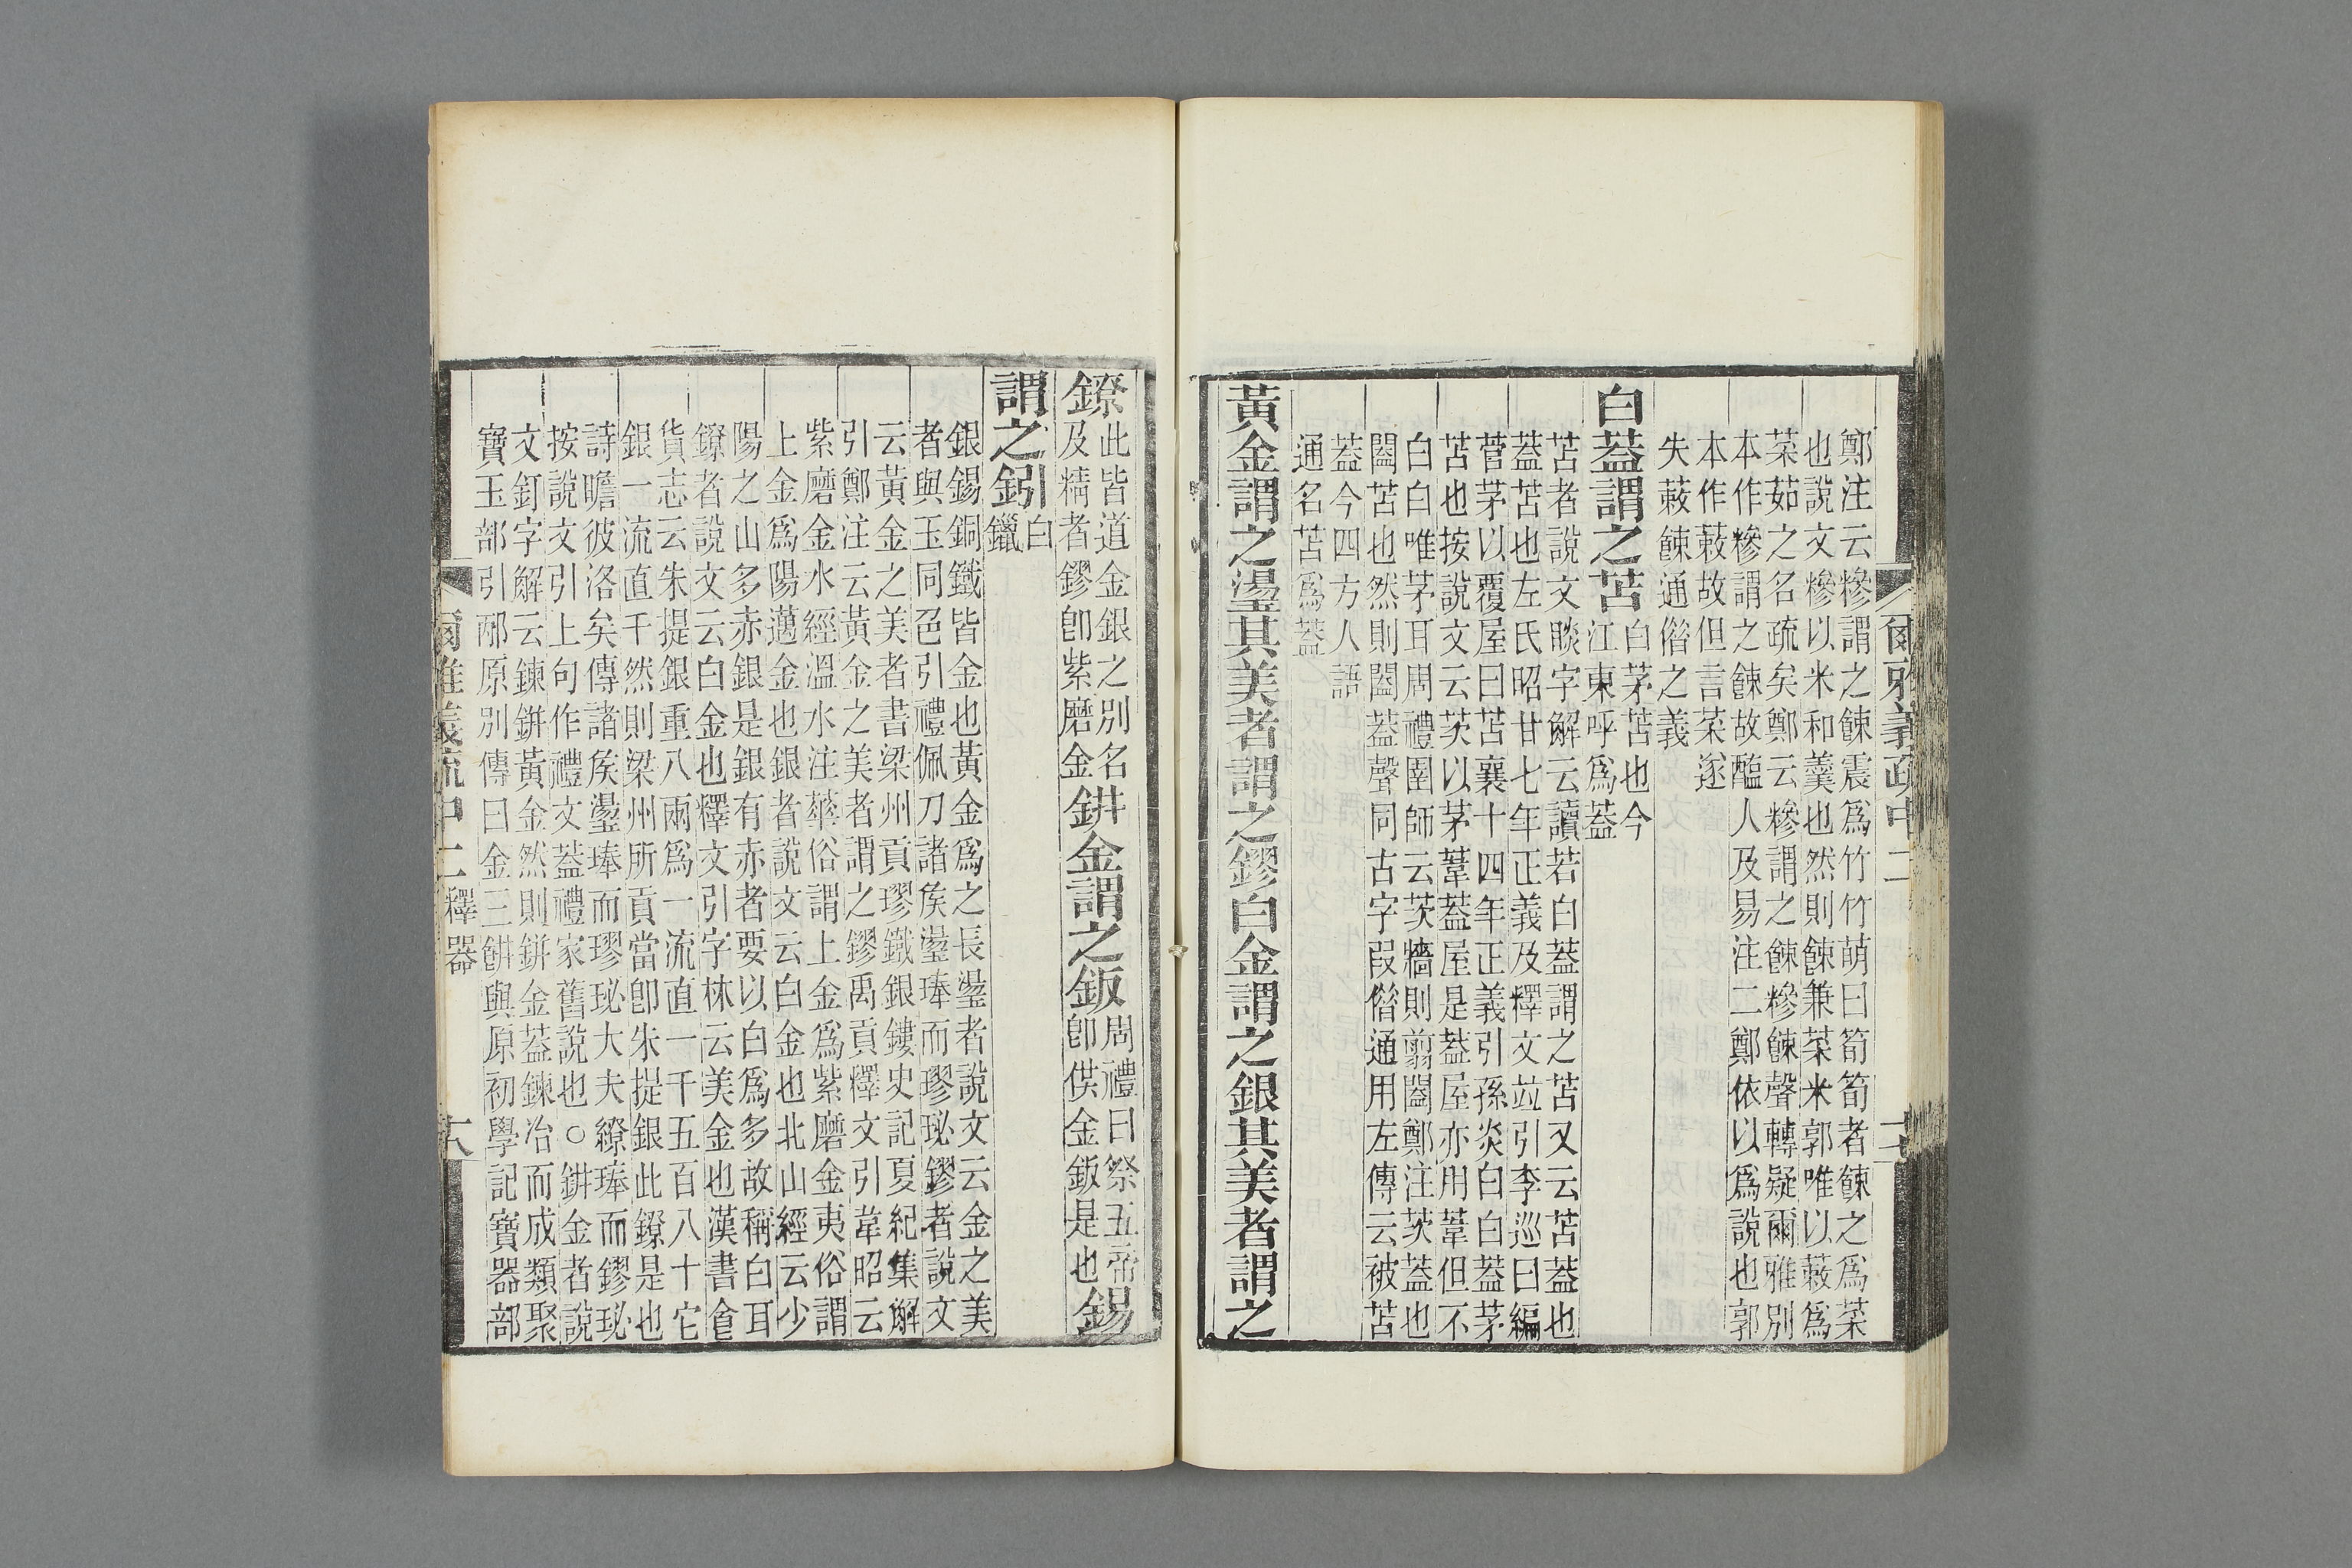 爾雅義疏中二
鄭注云糝謂之餗震爲竹竹萌曰筍筍者餗之爲菜
也說文糝以米和羹也然則餗兼菜米郭唯以蔌爲
菜茹之名疏矣鄭云糝謂之餗糝餗聲轉疑爾雅別
本作糝謂之餗故醢人及易注二鄭依以爲說也郭
本作蔌故但言菜遂
失蔌餗通偕之義
白葢謂之苫白茅苫也今
江東呼爲葢
苫者說文睒字解云讀若白葢謂之苫又云苫葢也
葢苫也左氏昭廿七年正義及釋文竝引李巡曰編
菅茅以覆屋曰苫襄十四年正義引孫炎曰白葢茅
苫也按說文云茨以茅葦葢屋是葢屋亦用葦但不
白白唯茅耳周禮圉師云茨牆則翦闔鄭注茨葢也
闔苫也然則闔葢聲同古字叚偕通用左傳云被苫
葢今四方人語
通名苫爲葢
黃金謂之璗其美者謂之鏐白金謂之銀其美者謂之
鐐此皆道金銀之別名
及精者鏐卽紫磨金鉼金謂之鈑周禮曰祭五帝
卽供金鈑是也錫
謂之鈏白
鑞
銀錫銅鐵皆金也黃金爲之長璗者說文云金之美
者與玉同色引禮佩刀諸矦璗琫而璆珌鏐者說文
云黃金之美者書梁州貢璆鐵銀鏤史記夏紀集解
引鄭注云黃金之美者謂之鏐禹貢釋文引韋昭云
紫磨金水經溫水注華俗謂上金爲紫磨金夷俗謂
上金爲陽邁金也銀者說文云白金也北山經云少
陽之山多赤銀是銀有赤者要以白爲多故稱白耳
鐐者說文云白金也釋文引字林云美金也漢書食
貨志云朱提銀重八兩爲一流直一千五百八十它
銀一流直千然則梁州所貢當卽朱提銀此鐐是也
詩瞻彼洛矣傳諸矦璗琫而璆珌大夫鐐琫而鏐珌
按說文引上句作禮文葢禮家舊說也○鉼金者說
文釘字解云鍊鉼黃金然則鉼金葢鍊冶而成類聚
寶玉部引邴原別傳曰金三鉼與原初學記寶器部
爾雅義疏中二 釋器 十六